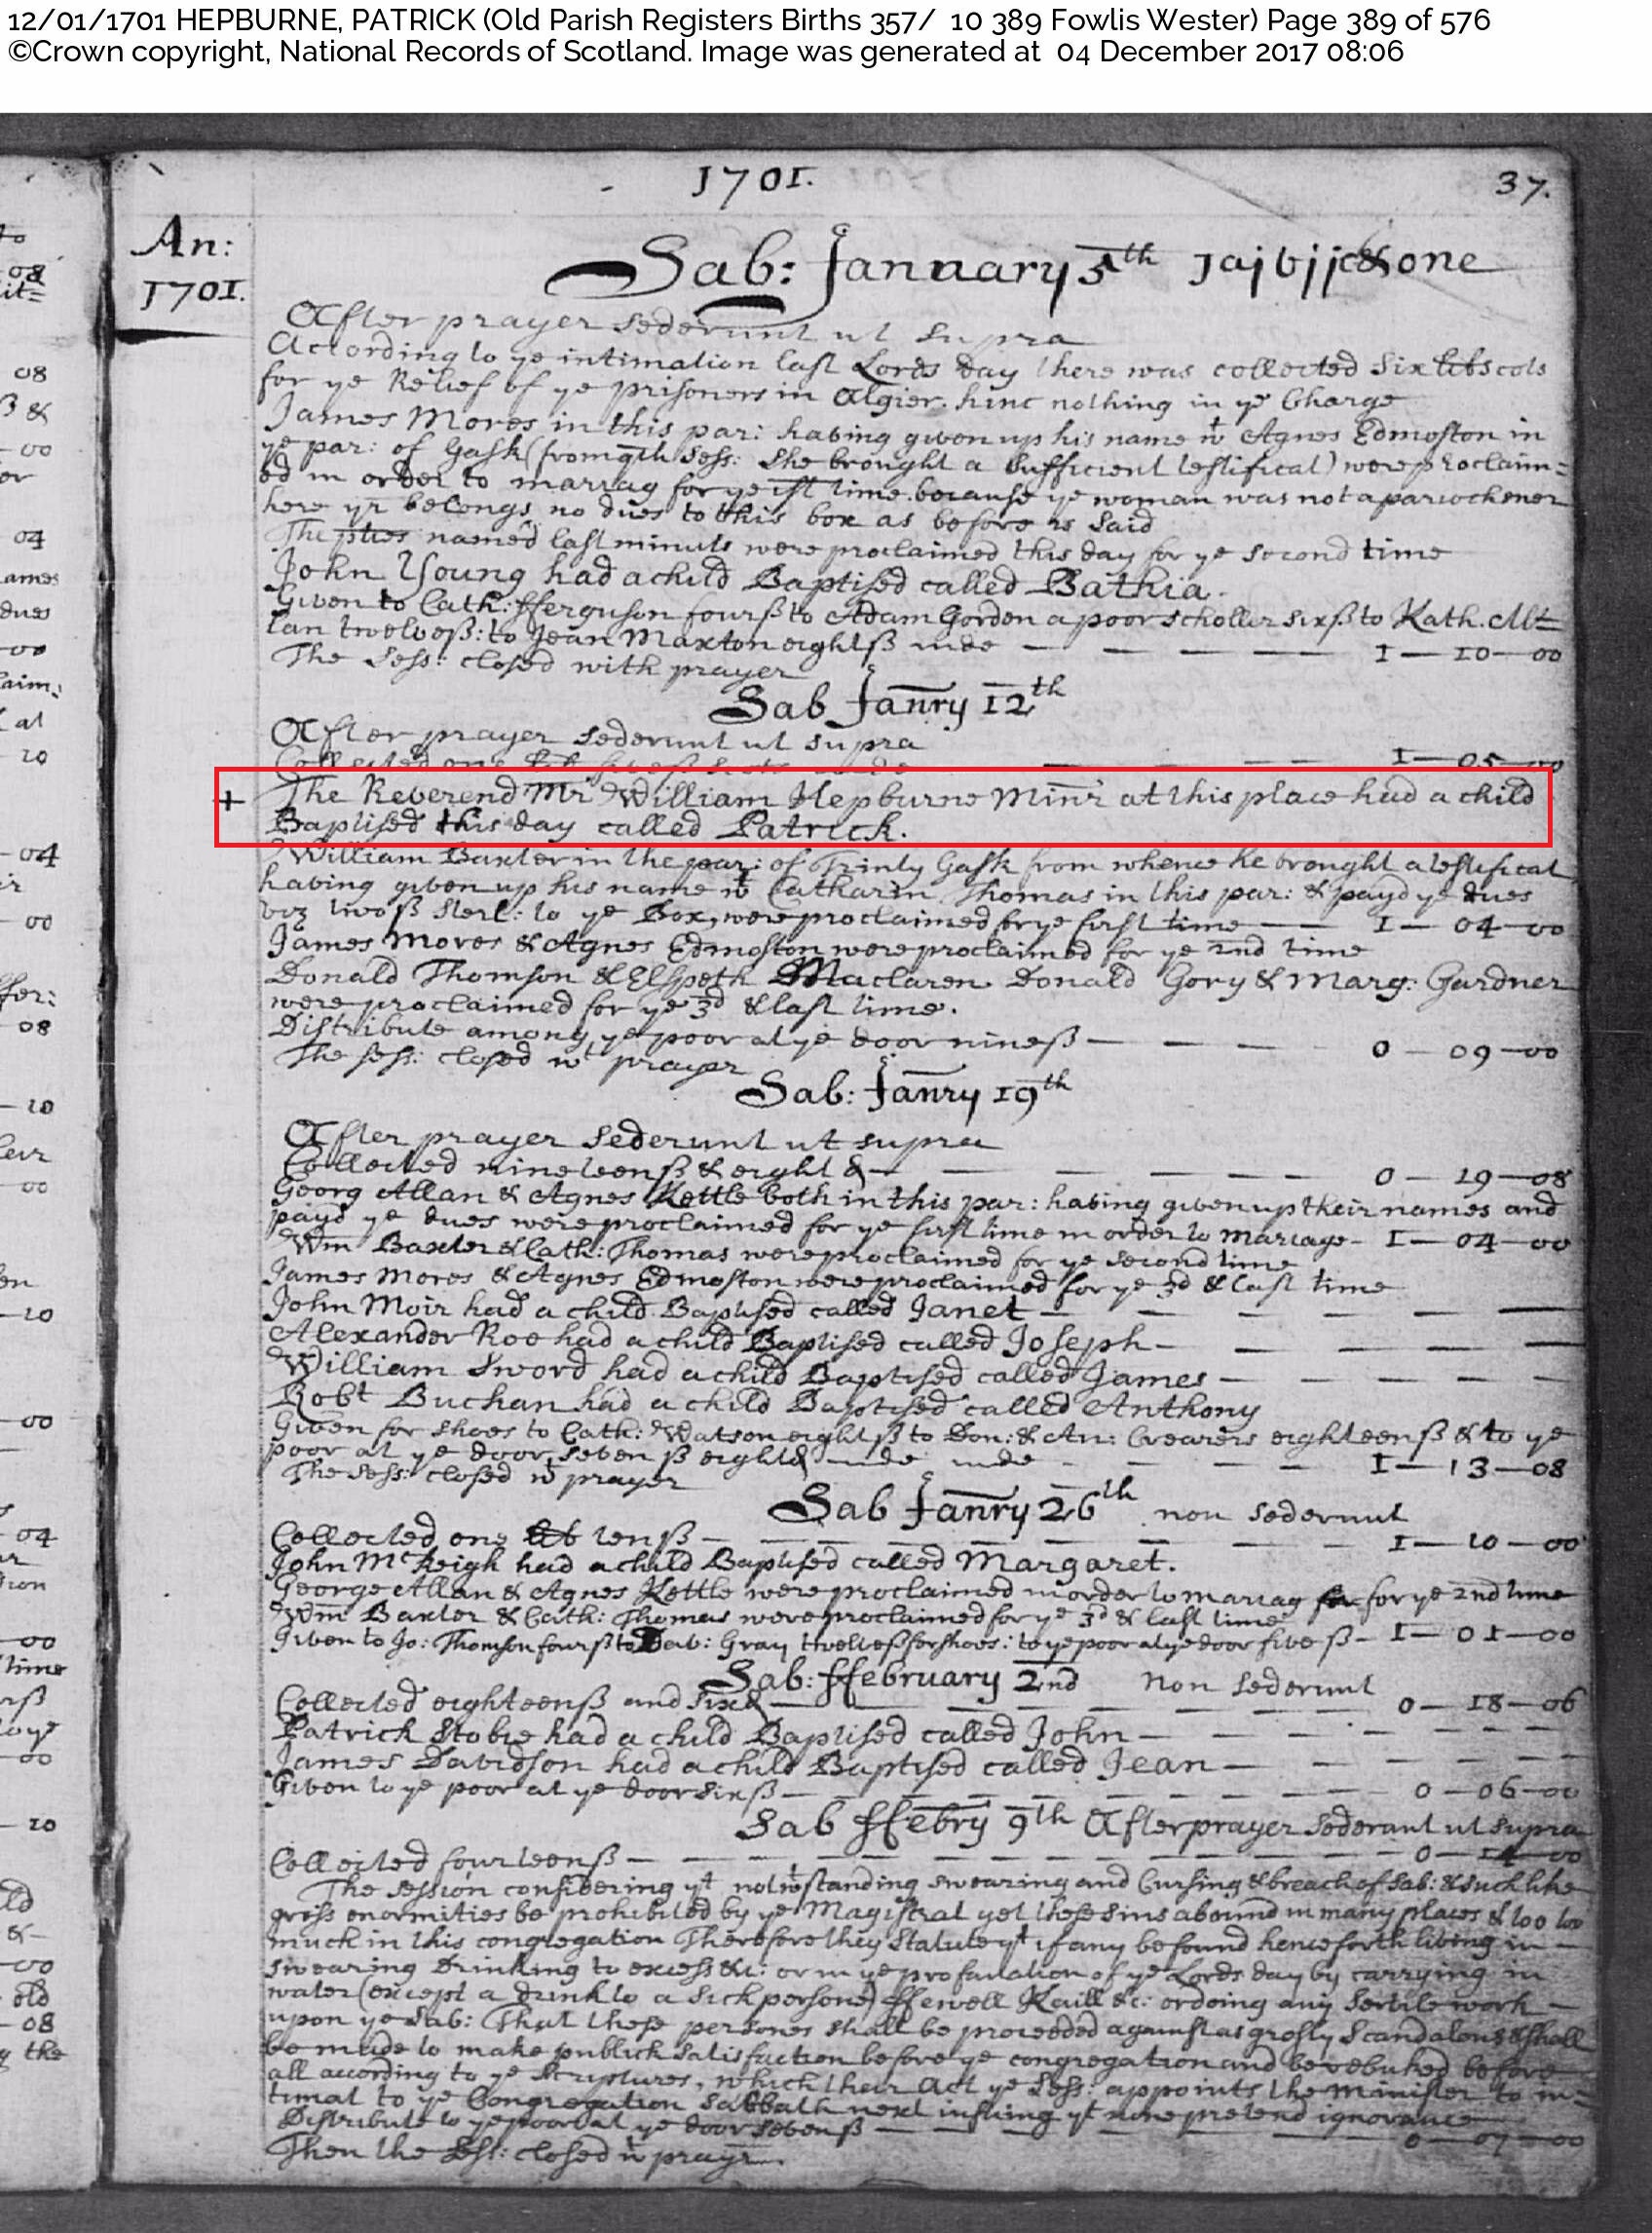 12/01/1701 HEPBURNE, PATRICK (Old Parish Registers Births 357/ 10 389 Fowlis Wester) Page 389 of 576
©Crown copyright, National Records of Scotland. Image was generated at 04 December 2017 08:06
1701. 37.
An:
1701.
Sab: Jannuary 5th Jajvijc & one
After prayer sederunt ut supra
According to ye intimation last Lords day there was collected Six libs scots
for ye Relief of ye prisoners in Algier. hinc nothing in ye Charge
James Mores in this par: having given up his name wt Agnes Edmoston in
ye par: of Gask (from qch Sess: She brought a Sufficient testificat) were proclaim=
ed in order to marrag for ye ist time. because ye woman was not a pariochener
here yr belongs no dues to this box as before is said
The pties named last minuts were proclaimed this day for ye second time
John Young had a child Baptised called Bathia.
Given to Cath: fferguson four ß to Adam Gordon a poor scholler six ß to Kath. All=
lan twelve ß: to Jean Maxton eight ß inde — 1 — 10 — 00
The Sess: closed with prayer
Sab Janry 12th
After prayer sederunt ut supra
Collected one 1 — 05 — 00
+ The Reverend Mr William Hepburne Minr at this place had a child
Baptised this day called Patrick.
William Baxter in the par: of Trinty Gask from whence he brought a testificat
having given up his name wt Catharin Thomas in this par: & payd ye dues
viz two ß sterl: to ye Box, were proclaimed for ye first time — 1 — 04 — 00
James Mores & Agnes Edmoston were proclaimed for ye 2nd time
Donald Thomson & Elspeth Maclaren Donald Gory & Marg: Gardner
were proclaimed for ye 3d & last time.
Distribute among ye poor at ye door nine ß — 0 — 09 — 00
The sess: closed wt prayer
Sab: Janry 19th
After prayer sederunt ut supra
Collected nineteen ß & eight d — 0 — 19 — 08
Georg Allan & Agnes Kettle both in this par: having given up their names and
payd ye dues were proclaimed for ye first time in order to mariage — 1 — 04 — 00
Wm Baxter & Cath: Thomas were proclaimed for ye second time
James Mores & Agnes Edmoston were proclaimed for ye 3d & last time
John Moir had a child Baptised called Janet —
Alexander Roe had a child Baptised called Joseph —
William Sword had a child Baptised called James —
Robt Buchan had a child Baptised called Anthony
Given for shoes to Cath: Watson eight ß to Don: & An: Crearers eighteen ß & to ye
poor at ye door, seven ß eight d inde inde — 1 — 13 — 08
The Sess: closed wt prayer
Sab Janry 26th non sederunt
Collected one lib ten ß — 1 — 10 — 00
John McKeigh had a child Baptised called Margaret.
George Allan & Agnes Kettle were proclaimed in order to mariag for for ye 2nd time
Wm Baxter & Cath: Thomas were proclaimed for ye 3d & last time
Given to Jo: Thomson four ß to Dav: Gray twelve ß for shoes: to ye poor at ye door five ß — 1 — 01 — 00
Sab: ffebruary 2nd non sederunt
Collected eighteen ß and six d — 0 — 18 — 06
Patrick Stobie had a child Baptised called John —
James Davidson had a child Baptised called Jean —
Given to ye poor at ye door six ß — 0 — 06 — 00
Sab ffebry 9th After prayer sederunt ut supra
Collected fourteen ß — 0 — 14 — 00
The session considering yt notwtstanding swearing and Cursing & breach of Sab: & such like
gross enormities be prohibited by ye Magistrat yet these sins abound in many places & too too
much in this congregation Therefore they Statute yt if any be found henceforth living in —
swearing Drinking to excess &c: or in ye profanation of ye Lords day by carrying in
water (except a drink to a sick persone) ffewell Kaill &c: or doing any Servile work —
upon ye Sab: That these persones shall be proceeded against as grosly Scandalous & shall
be made to make publick satisfaction before ye congregation and be rebuked before
all according to ye Scriptures, which their Act ye Sess: appoints the Minister to in=
timat to ye Congregation Sabbath next insuing yt none pretend ignorance
Distribute to ye poor at ye door seven ß — 0 — 07 — 00
Then the Sess: closed wt prayr.